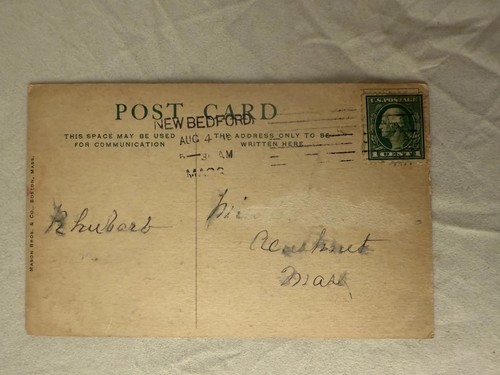 POST CARD
THIS SPACE MAY BE USED
FOR COMMUNICATION
THE ADDRESS ONLY TO BE
WRITTEN HERE
NEW BEDFORD,
AUG 4
AM
MASS
U.S. POSTAGE
1 CENT 1
MASON BROS. & CO., BOSTON, MASS.
Rhubarb
Acushnet
Mass